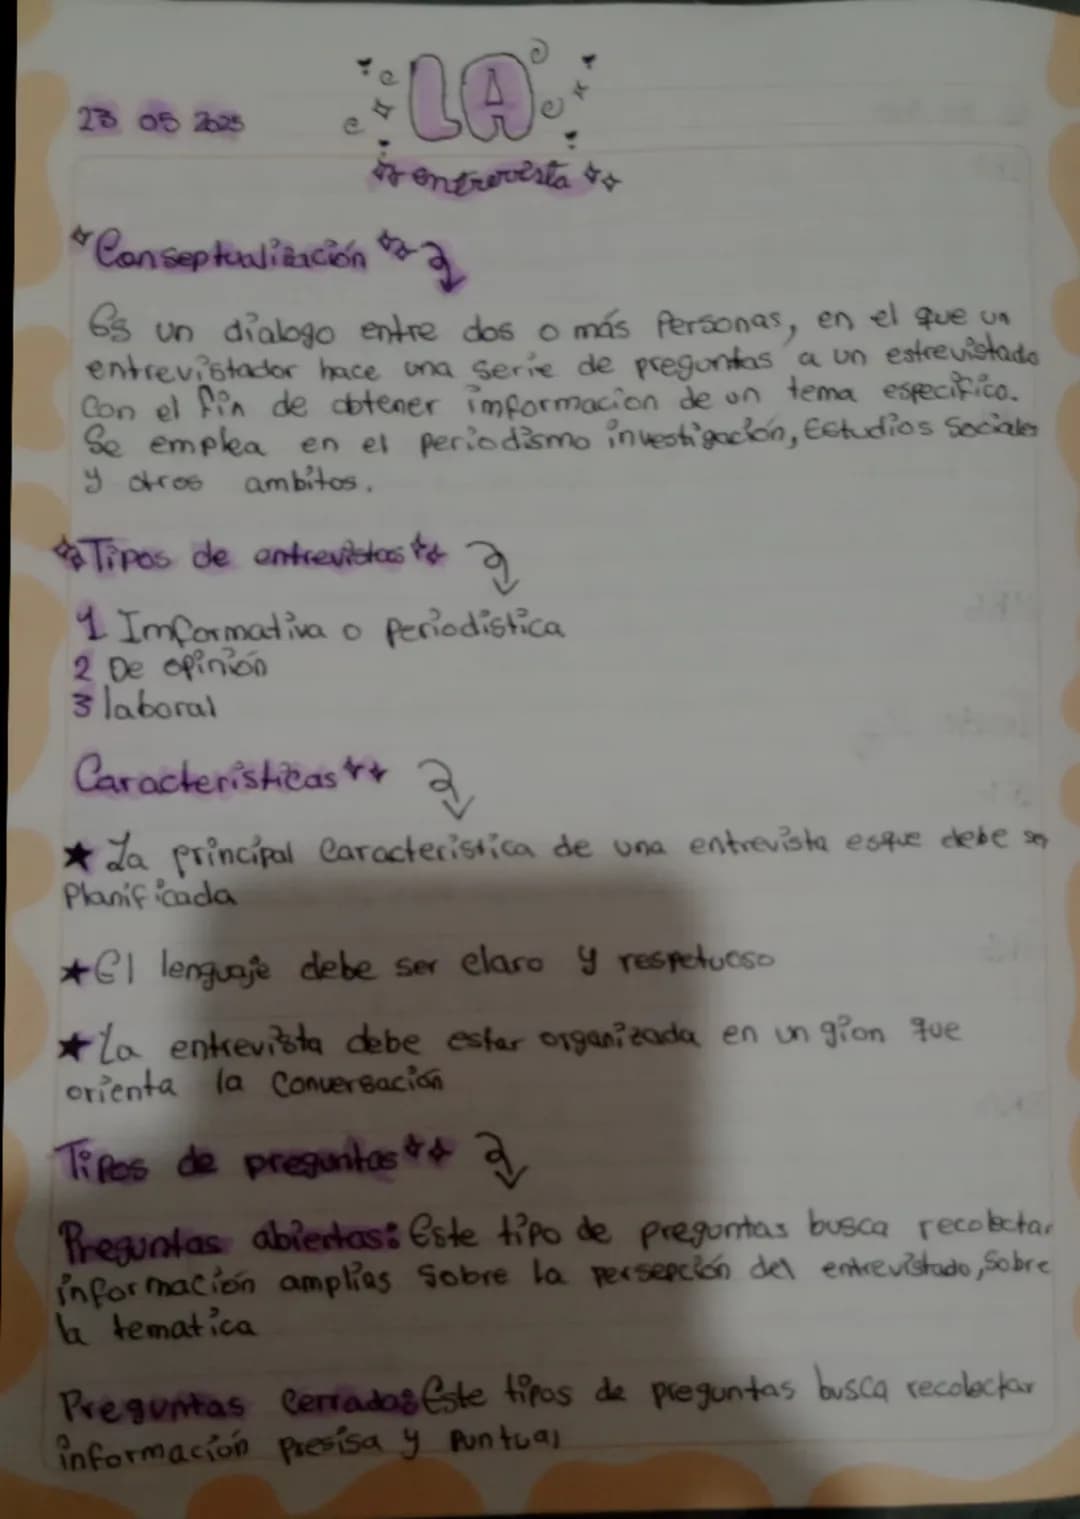 LA
23 05 2025
entrevista
Conseptualización
Es un dialogo entre dos o más Personas, en el que un
entrevistador hace una serie de preguntas a un estrevistado
Con el fin de obtener imformacion de un tema especifico.
Se emplea en el periodismo investigación, Estudios Sociales
y otros ambitos.
Tipos de entrevistas
1 Imformativa o Periodistica
2 De opinión
3 laboral
Caracteristicas
★ La principal Caracteristica de una entrevista esque debe ser
Planificada
★ El lenguaje debe ser claro y respetuoso
★ La entrevista debe estar organizada en un gion que
orienta la Conversación
Tipos de preguntas
Preguntas abiertas: Este tipo de preguntas busca recolectar
información amplias Sobre la persepción del entrevistado, Sobre
la tematica
Preguntas Cerradas Este tipos de preguntas busca recolectar
información presisa y puntual